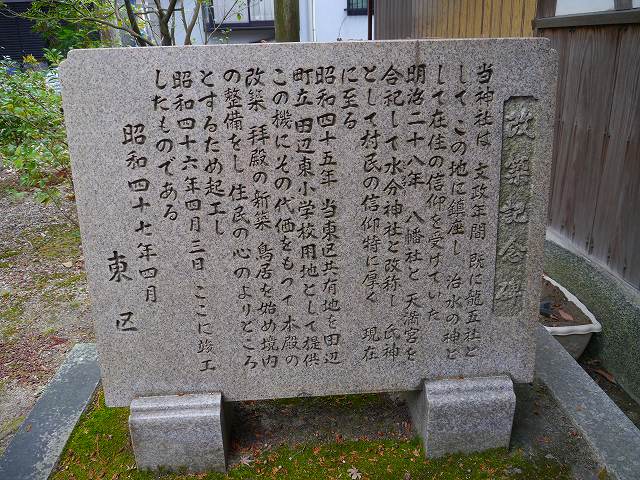 改築記念碑
当神社は 文政年間 既に龍五社と
して この地に鎮座し 治水の神と
して在住の信仰を受けていた
明治二十八年 八幡社と天満宮を
合祀して水分神社と改称し 氏神
として村民の信仰特に厚く 現在
に至る
昭和四十五年 当東区共有地を田辺
町立田辺東小学校用地として提供
この機にその代価をもつて本殿の
改築 拝殿の新築 鳥居を始め境内
の整備をし 住民の心のよりどころ
とするため起工し
昭和四十六年四月三日 ここに竣工
したものである
昭和四十七年四月
東区